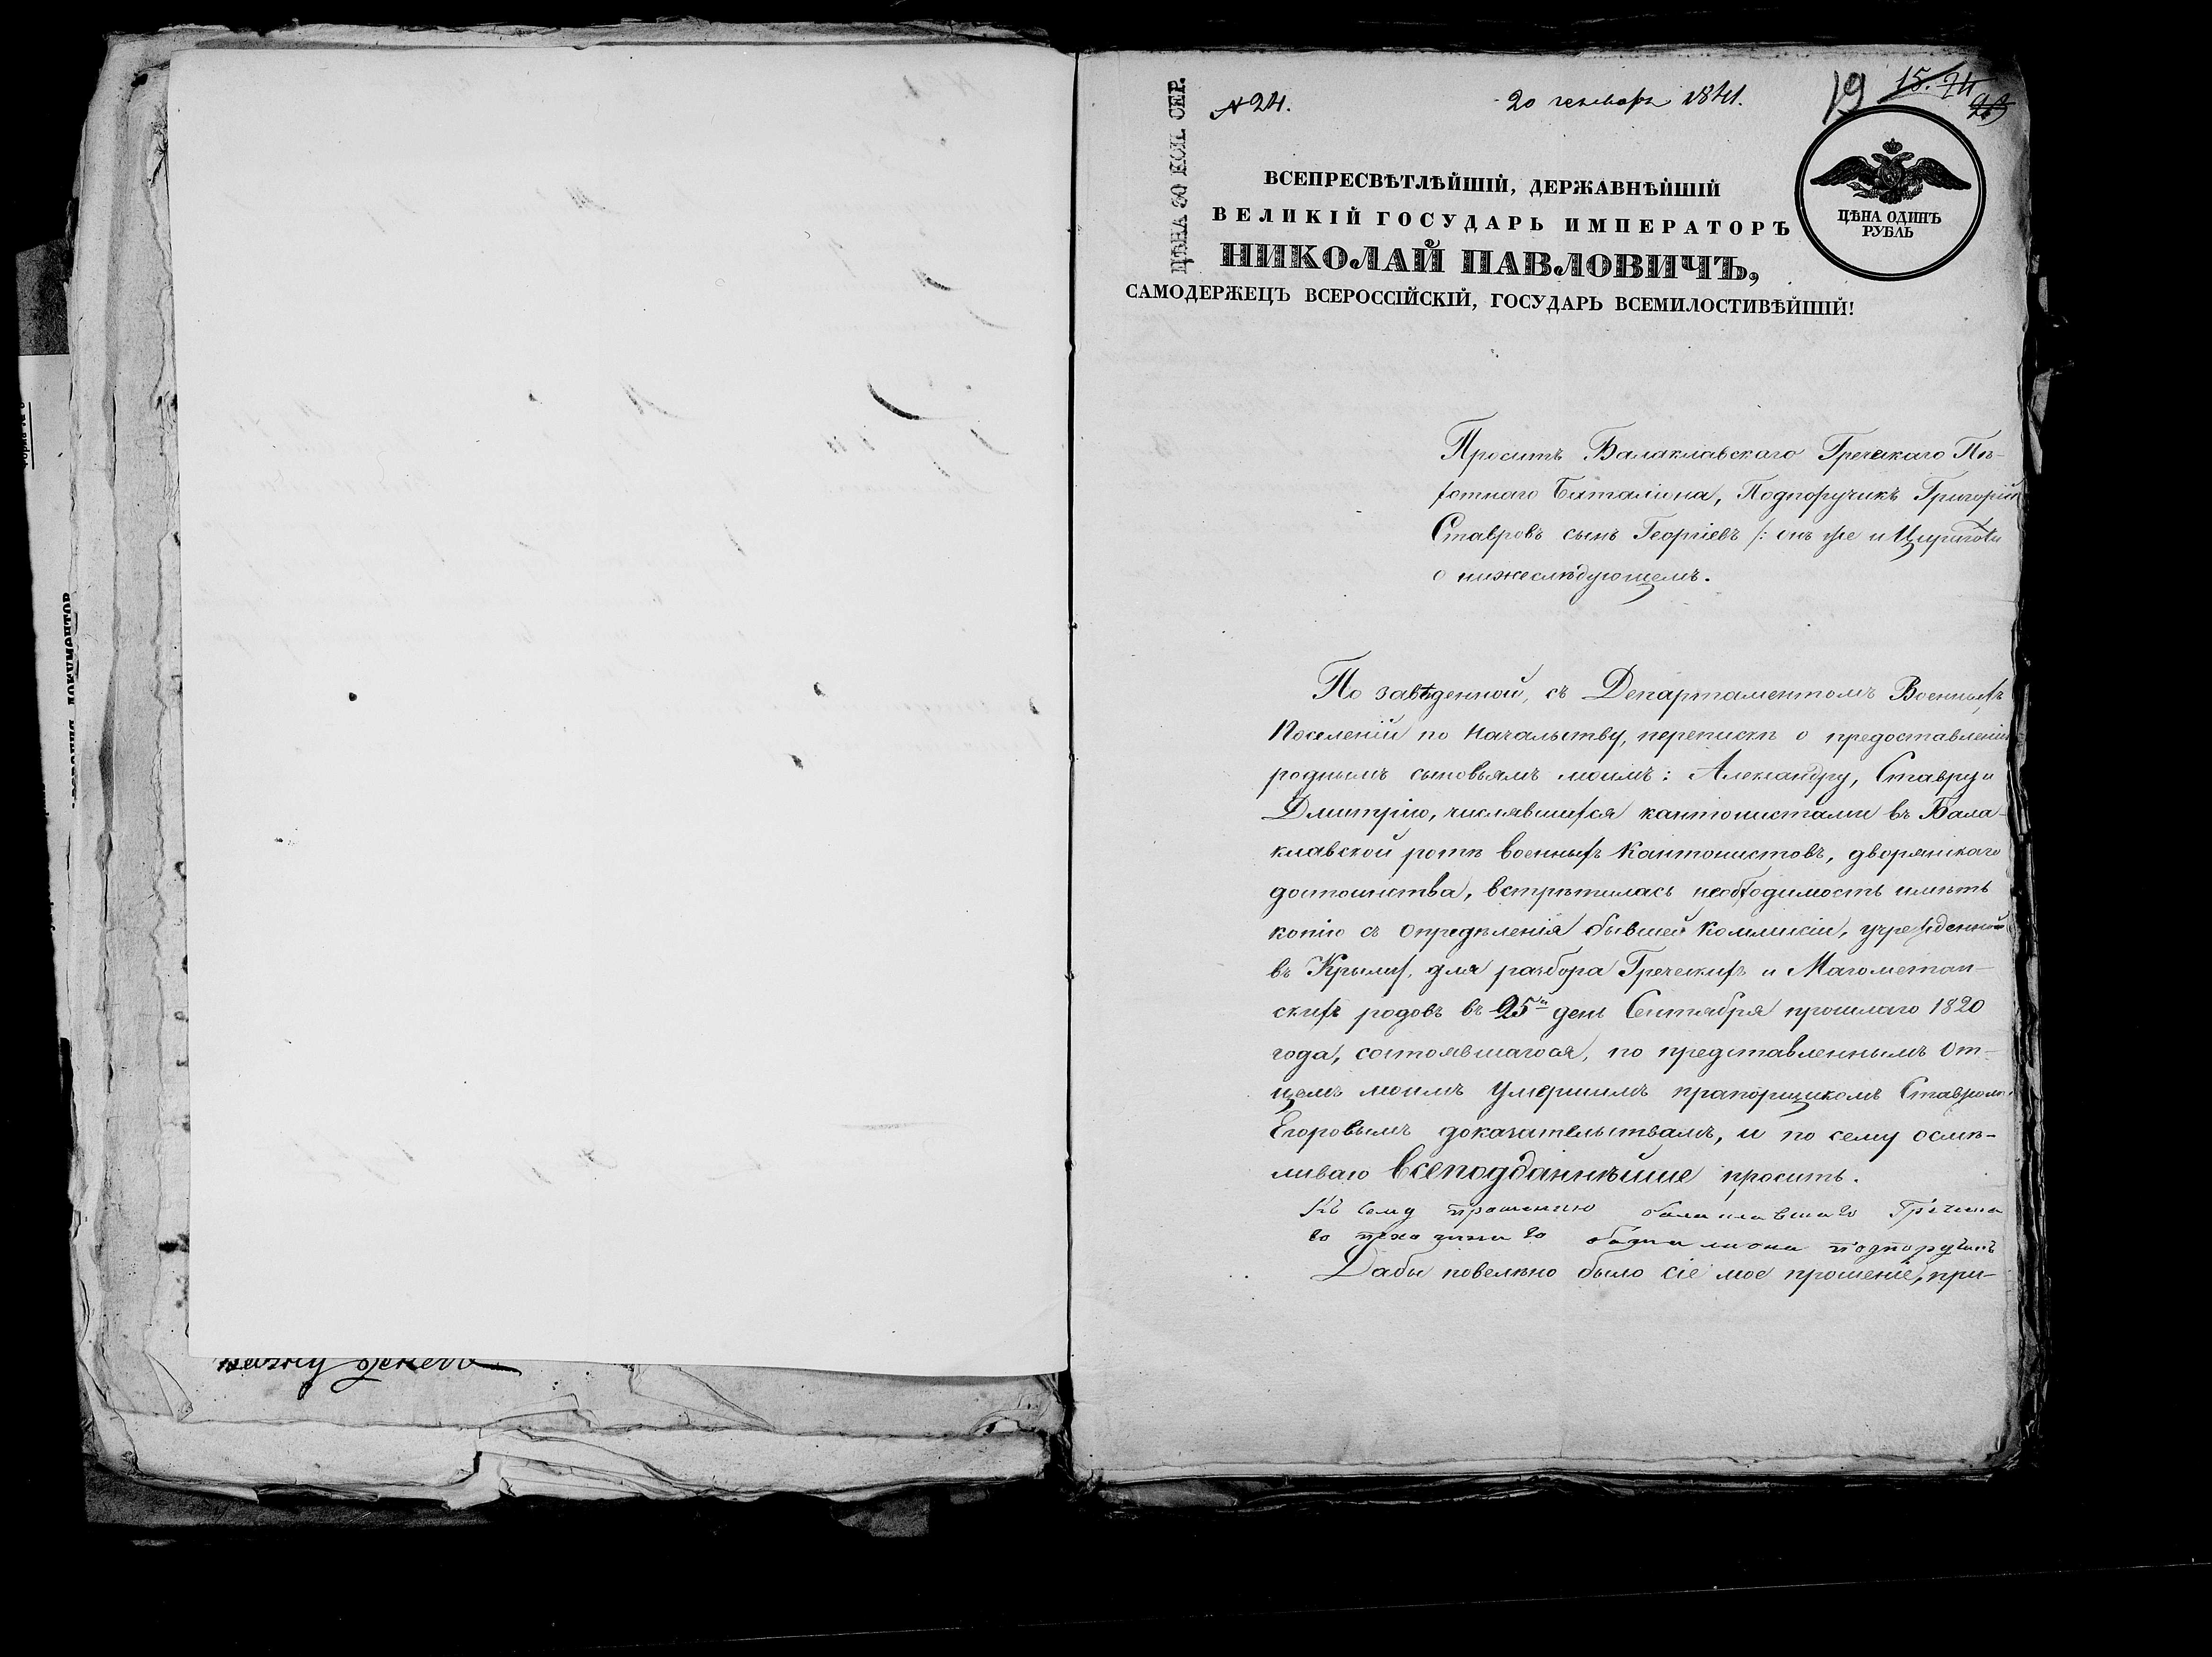 № 24.
20 генваря 1841.
19
15. 24
23
ЦѢНА 30 КОП. СЕР.
ЦѢНА ОДИНЪ
РУБЛЬ
ВСЕПРЕСВѢТЛѢЙШІЙ, ДЕРЖАВНѢЙШІЙ
ВЕЛИКІЙ ГОСУДАРЬ ИМПЕРАТОРЪ
НИКОЛАЙ ПАВЛОВИЧЪ,
САМОДЕРЖЕЦЪ ВСЕРОССІЙСКІЙ, ГОСУДАРЬ ВСЕМИЛОСТИВѢЙШІЙ!
Проситъ Балаклавскаго Греческаго Пѣ-
хотнаго Баталіона, Подпоручикъ Григорій
Ставровъ сынъ Георгіевъ /: онъ же и
о нижеслѣдующемъ.
По заведенной, съ Департаментомъ Военныхъ
Поселеній по начальству, перепискѣ о предоставленіи
роднымъ сыновьямъ моимъ: Александру, Ставру и
Дмитрію, числявшихся кантонистами въ Бала-
клавской ротѣ военныхъ кантонистовъ, дворянскаго
достоинства, встрѣтилась необходимость имѣть
копію съ опредѣленія бывшей Коммисіи, учрежденной
въ Крыму, для разбора Греческихъ и Магометан-
скихъ родовъ въ 25й день Сентября прошлаго 1820
года, состоявшагося, по представленнымъ От-
цемъ моимъ умершимъ прапорщикомъ Ставромъ
Егоровымъ доказательствамъ, и по сему осмѣ-
ливаю всеподданнѣйше просить.
Къ сему прошенію балаклавшаго Гречиска
го пехотнаго баталиона подпоручикъ
Дабы повелѣно было сіе мое прошеніе, при-